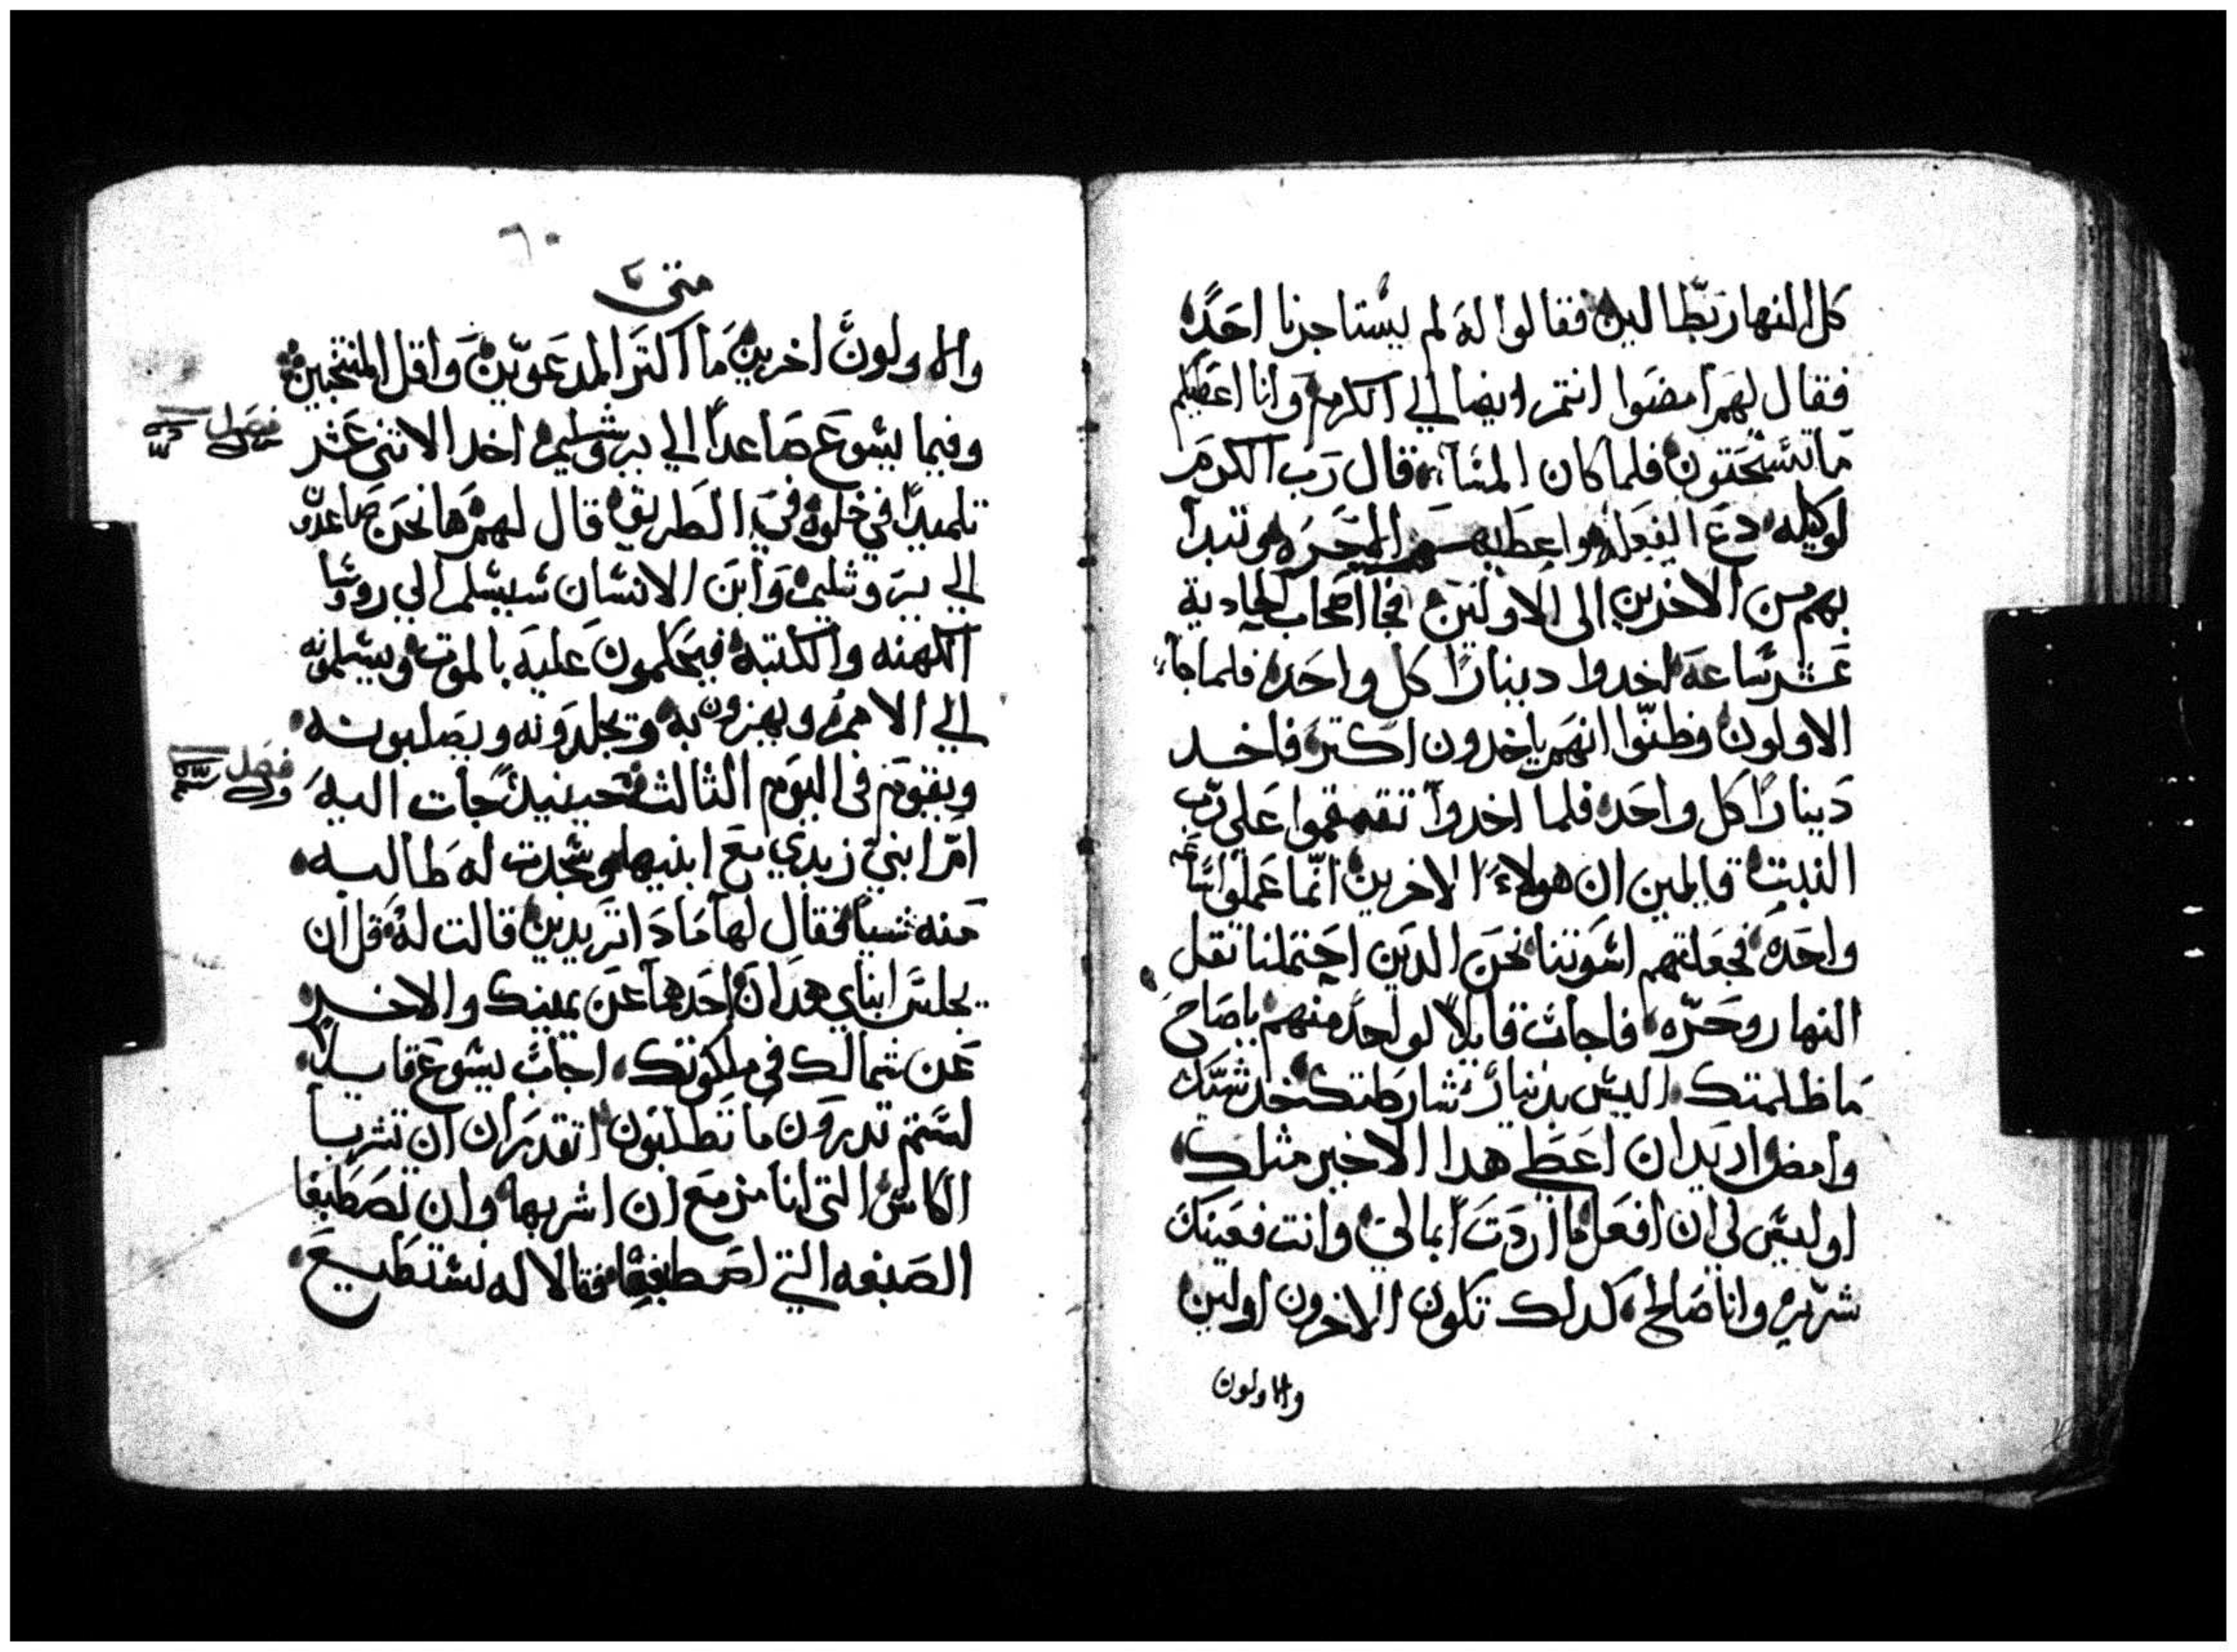 كل النهار بطّالين فقالوا له لم يستاجرنا احد
فقال لهم امضوا انتم ايضا الي الكرم وانا اعطيكم
ما تستحقون فلما كان المساء قال رب الكرم
لوكيله دع الفعله واعطيهم الاجره وتبدا
بهم من الاخرين الى الاولين فجا اصحاب الحادية
عشر ساعه اخدوا دينارًا كل واحد فلما جاء
الاولون وظنّوا انهم ياخدون اكتر فاخد
دينارًا كل واحد فلما اخدوا تقمقموا على رب
البيت قايلين ان هولاء الاخرين انّما عملوا ساعه
واحده فجعلتهم اسوتنا نحن الدين احتملنا تقل
النهار وحرّه فاجاب قايلاً لواحد منهم ياصاح
ما ظلمتك اليس بدينار شارطتك خد شيّك
وامض اريد ان اعطي هدا الاخير مثلك
او ليس لي ان افعل ما اردت بمالي وانت فعينك
شريره وانا صالح كدلك تكون الاخرون اولين
والاولون
٦٠
متى
والاولون اخرين ما اكتر المدعوّين واقل المنتخبين
فصل
وفيما يسوع صاعدًا الي يروشليم اخد الاتنى عشر
تلميدًا في خلوة في الطريق قال لهم ها نحن صاعدون
الي يروشليم وابن الانسان سيسلم الي روسا
الكهنه والكتبة فيحكمون عليه بالموت ويسلمونه
الي الامم ويهزون به ويجلدونه ويصلبونه
فصل
ويقوم في اليوم الثالث فحينيد جات اليه
امّ ابني زبدي مع ابنيها وسجدت له طالبه
منه شيا فقال لها مادا تريدين قالت له قل ان
يجلس ابناي هدان احدها عن يمينك والاخر
عن شمالك في ملكوتك اجاب يسوع قايلاً
لستم تدرون ما تطلبون اتقدران ان تشربا
الكاس التي انا مزمع ان اشربها وان تصطبغا
الصبغه التي اصطبغها فقالا له نستطيع